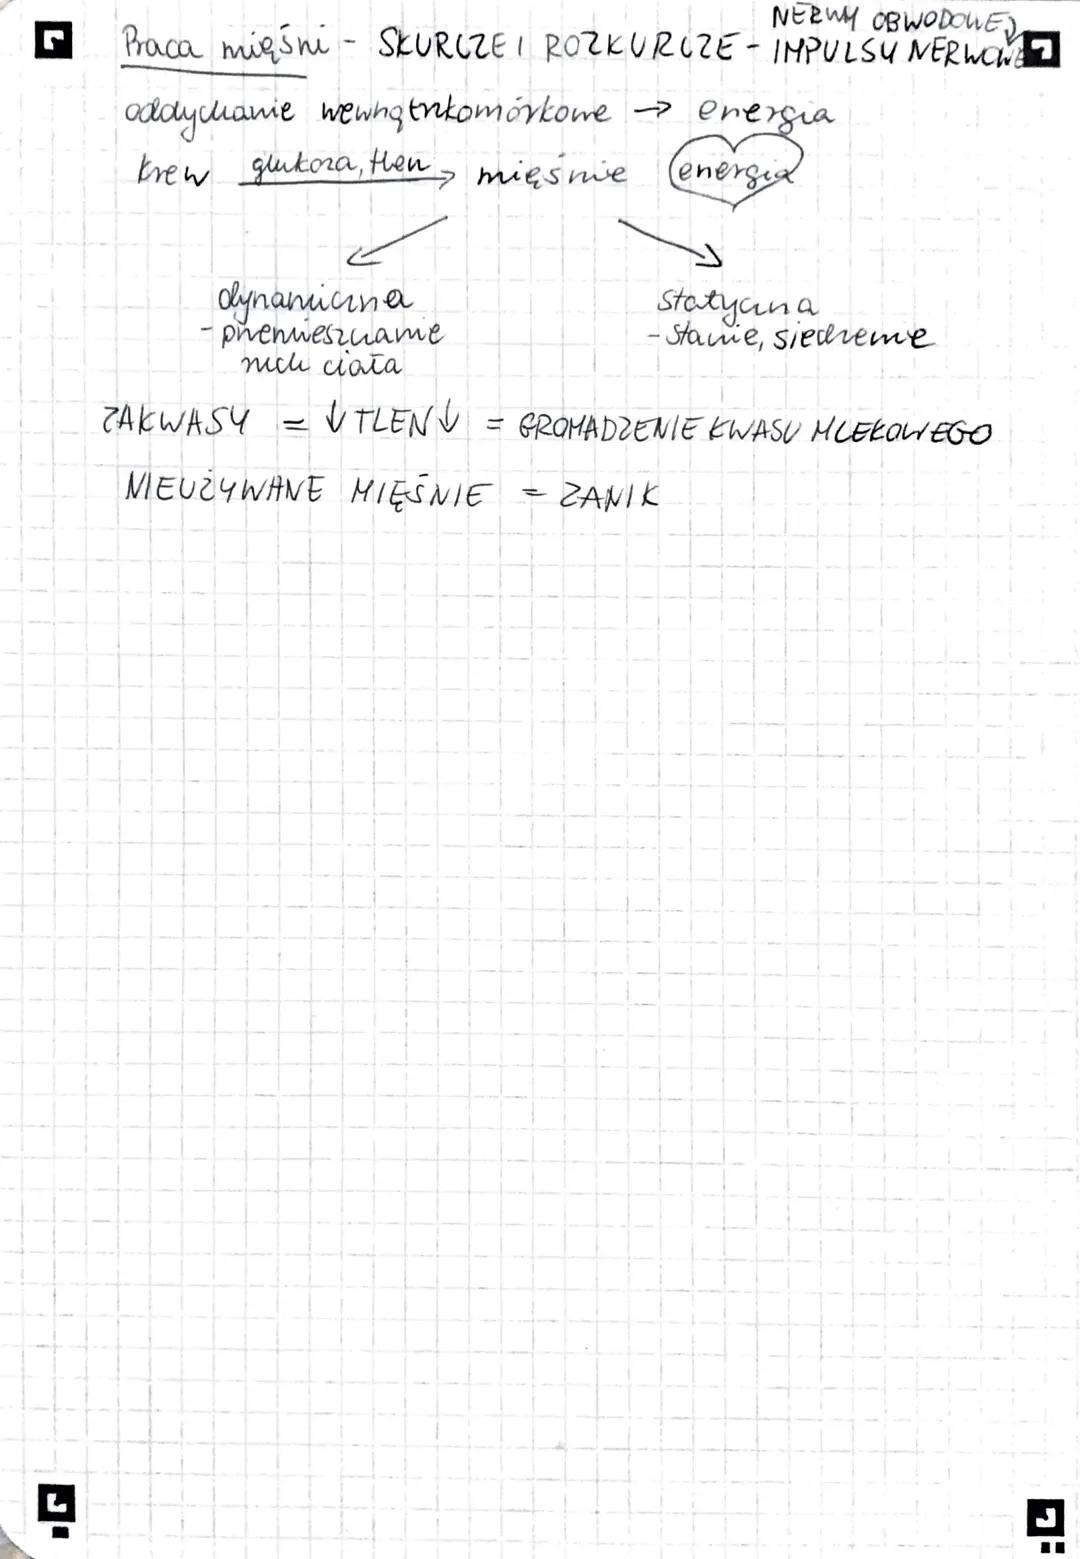 NERWY OBWODOWE
Praca mięśni - SKURCZE I ROZKURCZE - IMPULSY NERWOWE
oddychanie wewnątrzkomórkowe → energia
krew glukoza, tlen → mięśnie energia
dynamiczna statyczna
- przemieszczanie - stanie, siedzenie
ruch ciała
ZAKWASY = ↓ TLEN ↓ = GROMADZENIE KWASU MLEKOWEGO
NIEUŻYWANE MIĘŚNIE = ZANIK